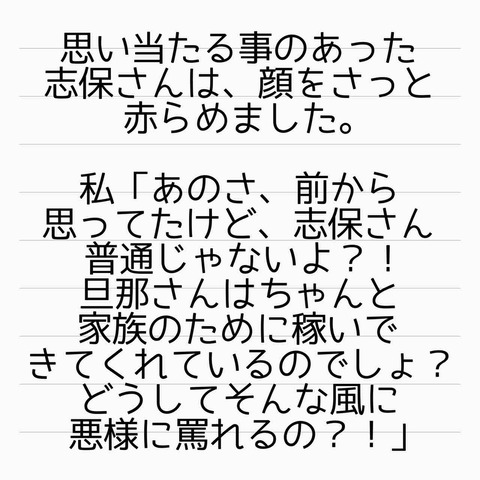 思い当たる事のあった
志保さんは、顔をさっと
赤らめました。
私「あのさ、前から
思ってたけど、志保さん
普通じゃないよ？！
旦那さんはちゃんと
家族のために稼いで
きてくれているのでしょ？
どうしてそんな風に
悪様に罵れるの？！」